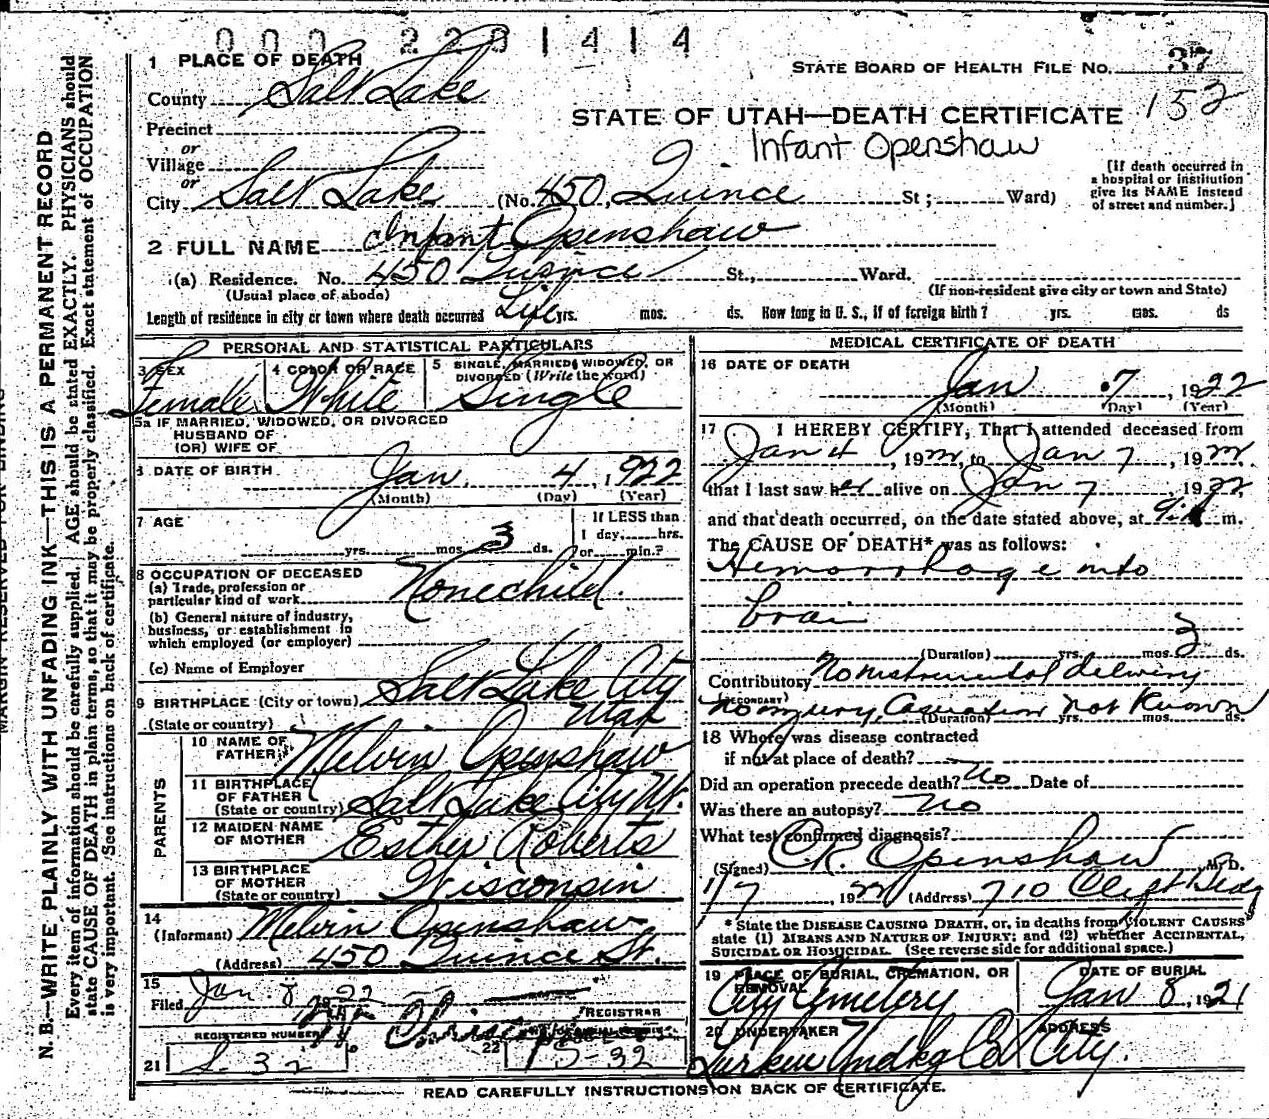 000 2231414
1 PLACE OF DEATH
STATE BOARD OF HEALTH FILE NO. 37
County Salt Lake
152
STATE OF UTAH—DEATH CERTIFICATE
Precinct
or
Infant Openshaw
Village
or
City Salt Lake (No. 450, Quince St; Ward)
[If death occurred in
a hospital or institution
give its NAME instead
of street and number.]
2 FULL NAME Infant Openshaw
(a) Residence. No. 450 Quince St., Ward.
(Usual place of abode)
(If non-resident give city or town and State)
Length of residence in city or town where death occurred Life yrs. mos. ds. How long in U. S., if of foreign birth? yrs. mos. ds
PERSONAL AND STATISTICAL PARTICULARS
3 SEX
Female
4 COLOR OR RACE
White
5 SINGLE, MARRIED, WIDOWED, OR
DIVORCED (Write the word)
Single
5a IF MARRIED, WIDOWED, OR DIVORCED
HUSBAND OF
(OR) WIFE OF
6 DATE OF BIRTH
Jan. 4, 1922
(Month) (Day) (Year)
7 AGE
yrs. mos. 3 ds.
If LESS than
1 day, hrs.
or min.?
8 OCCUPATION OF DECEASED
(a) Trade, profession or
particular kind of work None child.
(b) General nature of industry,
business, or establishment in
which employed (or employer)
(c) Name of Employer
9 BIRTHPLACE (City or town) Salt Lake City
(State or country) Utah
PARENTS
10 NAME OF
FATHER Melvin Openshaw
11 BIRTHPLACE
OF FATHER
(State or country) Salt Lake City Ut.
12 MAIDEN NAME
OF MOTHER Esther Roberts
13 BIRTHPLACE
OF MOTHER
(State or country) Wisconsin
14
(Informant) Melvin Openshaw
(Address) 450 Quince St.
15
Filed Jan. 8 22
REGISTRAR
REGISTERED NUMBER
21 S-32
22
MEDICAL CERTIFICATE OF DEATH
16 DATE OF DEATH
Jan 7, 1922
(Month) (Day) (Year)
17 I HEREBY CERTIFY, That I attended deceased from
Jan 4, 1922, to Jan 7, 1922.
that I last saw her alive on Jan 7 1922
and that death occurred, on the date stated above, at m.
The CAUSE OF DEATH* was as follows:
Hemorrhage into
brain
(Duration) yrs. mos. 3 ds.
Contributory No instrumental delivery
(SECONDARY)
no injury, Causation not Known
(Duration) yrs. mos. ds.
18 Where was disease contracted
if not at place of death?
Did an operation precede death? No Date of
Was there an autopsy? No
What test confirmed diagnosis?
(Signed) CR. Openshaw M. D.
1/7, 1922 (Address) 710 Clift Bldg
* State the DISEASE CAUSING DEATH, or, in deaths from VIOLENT CAUSES
state (1) MEANS AND NATURE OF INJURY; and (2) whether ACCIDENTAL,
SUICIDAL OR HOMICIDAL. (See reverse side for additional space.)
19 PLACE OF BURIAL, CREMATION, OR
REMOVAL
City Cemetery
DATE OF BURIAL
Jan 8, 1921
20 UNDERTAKER
Larkin Undkg Co
ADDRESS
City.
READ CAREFULLY INSTRUCTIONS ON BACK OF CERTIFICATE.
MARGIN RESERVED FOR BINDING
N. B.—WRITE PLAINLY WITH UNFADING INK—THIS IS A PERMANENT RECORD
Every item of information should be carefully supplied. AGE should be stated EXACTLY. PHYSICIANS should
state CAUSE OF DEATH in plain terms, so that it may be properly classified. Exact statement of OCCUPATION
is very important. See instructions on back of certificate.